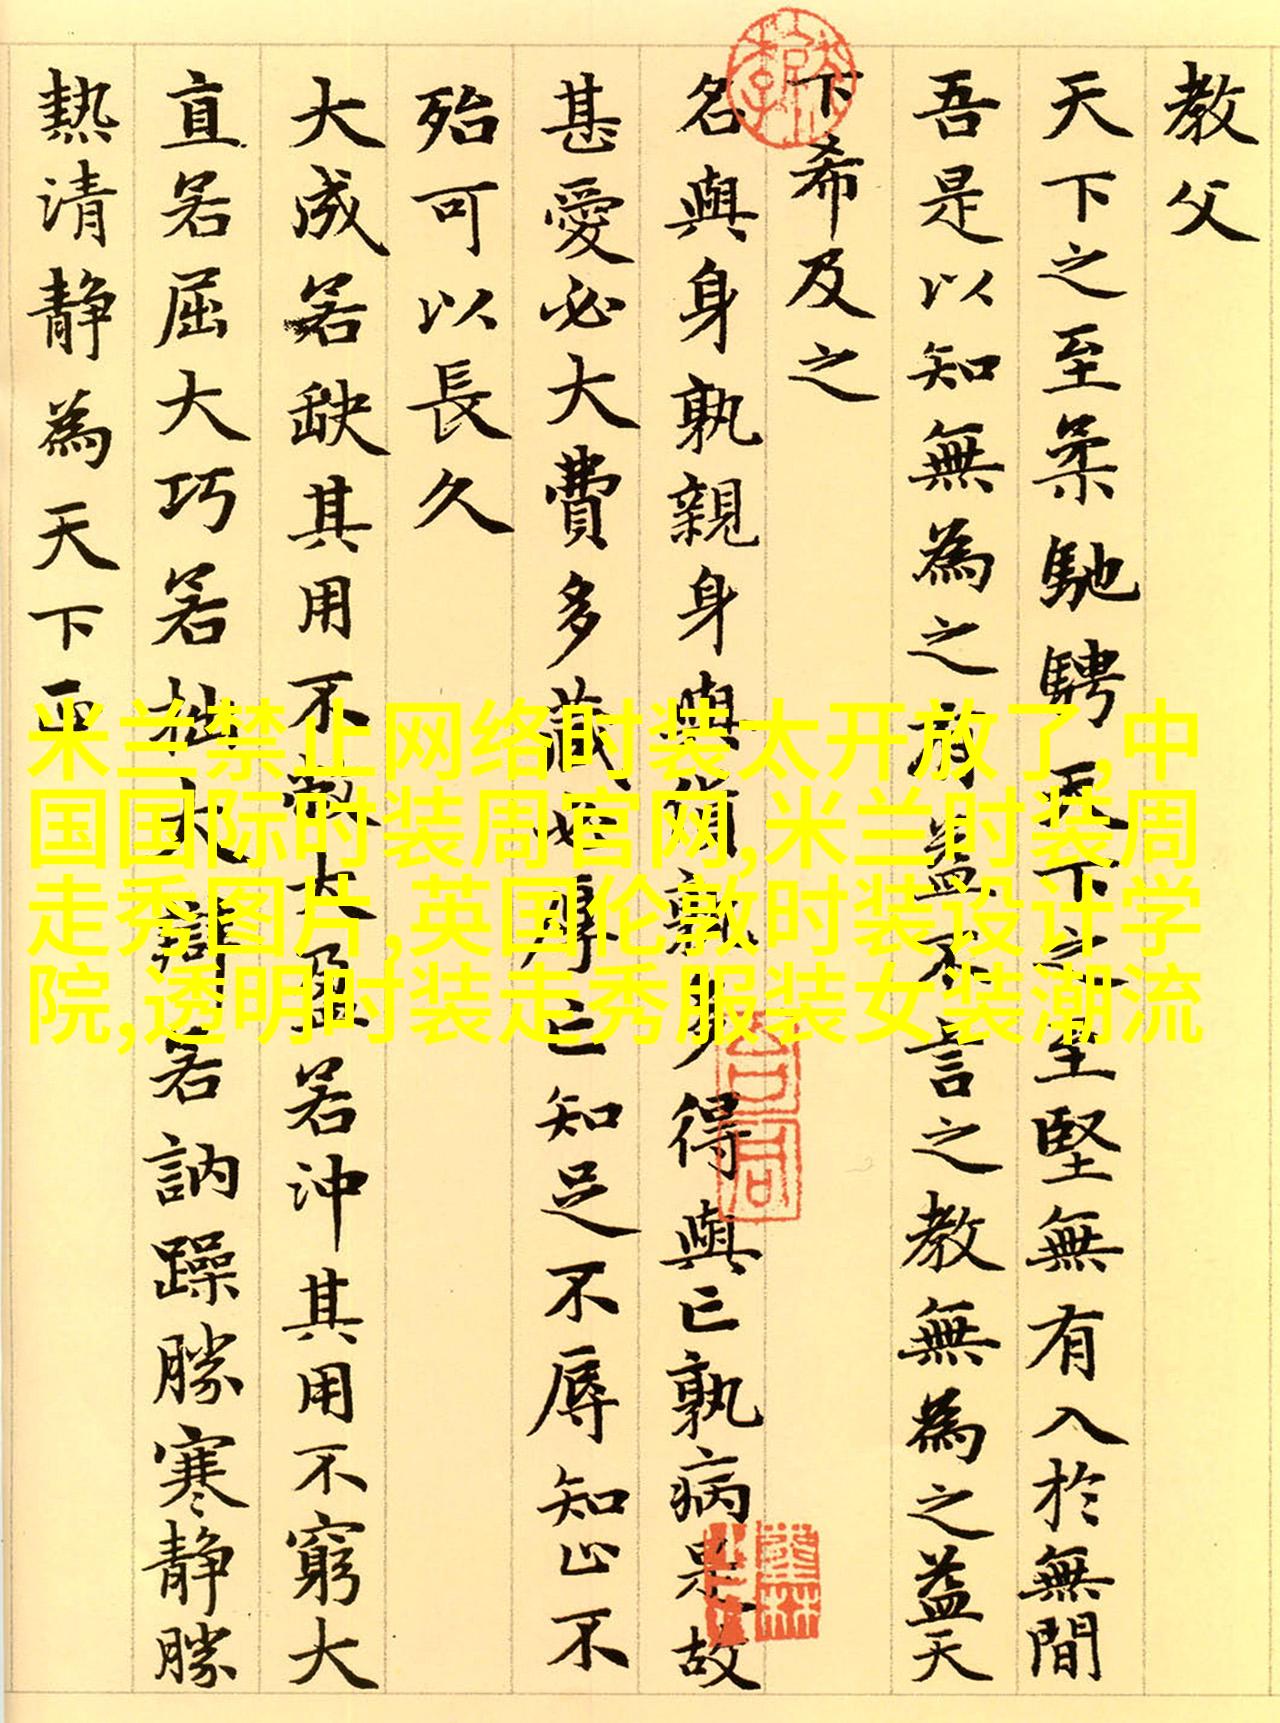 教父
天下之至柔馳騁天下之至堅無有入於無間
吾是以知無為之有益不言之教無為之益天
下希及之
名與身孰親身與貨孰多得與亡孰病是故
甚愛必大費多藏必厚亡知足不辱知止不
殆可以長久
大成若缺其用不弊大盈若沖其用不窮大
直若屈大巧若拙大辯若訥躁勝寒靜勝
熱清靜為天下正
米兰禁止网络时装太开放了,中
国国际时装周官网,米兰时装周
走秀图片,英国伦敦时装设计学
院,透明时装走秀服装女装潮流